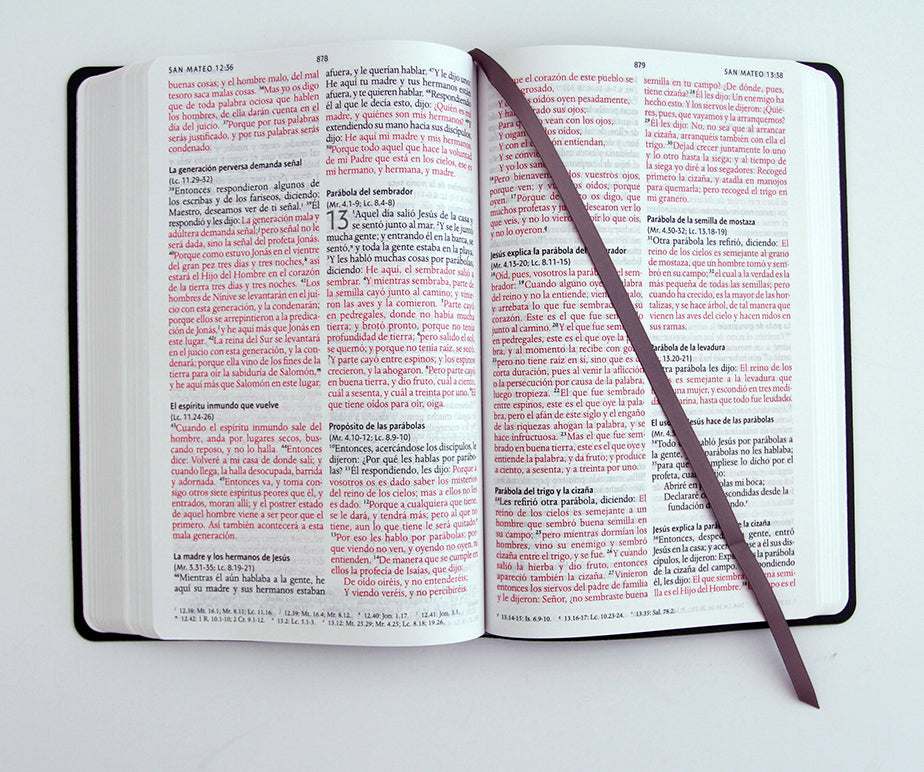 SAN MATEO 12:36
878
buenas cosas; y el hombre malo, del mal
tesoro saca malas cosas. 36Mas yo os digo
que de toda palabra ociosa que hablen
los hombres, de ella darán cuenta en el
día del juicio. 37Porque por tus palabras
serás justificado, y por tus palabras serás
condenado.
La generación perversa demanda señal
(Lc. 11.29-32)
38Entonces respondieron algunos de
los escribas y de los fariseos, diciendo:
Maestro, deseamos ver de ti señal. 39Él
respondió y les dijo: La generación mala y
adúltera demanda señal; pero señal no le
será dada, sino la señal del profeta Jonás.
40Porque como estuvo Jonás en el vientre
del gran pez tres días y tres noches, así
estará el Hijo del Hombre en el corazón
de la tierra tres días y tres noches. 41Los
hombres de Nínive se levantarán en el jui-
cio con esta generación, y la condenarán;
porque ellos se arrepintieron a la predica-
ción de Jonás, y he aquí más que Jonás en
este lugar. 42La reina del Sur se levantará
en el juicio con esta generación, y la con-
denará; porque ella vino de los fines de la
tierra para oír la sabiduría de Salomón,
y he aquí más que Salomón en este lugar.
El espíritu inmundo que vuelve
(Lc. 11.24-26)
43Cuando el espíritu inmundo sale del
hombre, anda por lugares secos, bus-
cando reposo, y no lo halla. 44Entonces
dice: Volveré a mi casa de donde salí; y
cuando llega, la halla desocupada, barrida
y adornada. 45Entonces va, y toma con-
sigo otros siete espíritus peores que él, y
entrados, moran allí; y el postrer estado
de aquel hombre viene a ser peor que el
primero. Así también acontecerá a esta
mala generación.
La madre y los hermanos de Jesús
(Mr. 3.31-35; Lc. 8.19-21)
46Mientras él aún hablaba a la gente, he
aquí su madre y sus hermanos estaban
afuera, y le querían hablar. 47Y le dijo uno:
He aquí tu madre y tus hermanos están
afuera, y te quieren hablar. 48Respondiendo
él al que le decía esto, dijo: ¿Quién es mi
madre, y quiénes son mis hermanos? 49Y
extendiendo su mano hacia sus discípulos,
dijo: He aquí mi madre y mis hermanos.
50Porque todo aquel que hace la voluntad
de mi Padre que está en los cielos, ese es
mi hermano, y hermana, y madre.
Parábola del sembrador
(Mr. 4.1-9; Lc. 8.4-8)
13 1Aquel día salió Jesús de la casa y
se sentó junto al mar. 2Y se le juntó
mucha gente; y entrando él en la barca, se
sentó, y toda la gente estaba en la playa.
3Y les habló muchas cosas por parábolas,
diciendo: He aquí, el sembrador salió a
sembrar. 4Y mientras sembraba, parte de
la semilla cayó junto al camino; y vinie-
ron las aves y la comieron. 5Parte cayó
en pedregales, donde no había mucha
tierra; y brotó pronto, porque no tenía
profundidad de tierra; 6pero salido el sol,
se quemó; y porque no tenía raíz, se secó.
7Y parte cayó entre espinos; y los espinos
crecieron, y la ahogaron. 8Pero parte cayó
en buena tierra, y dio fruto, cuál a ciento,
cuál a sesenta, y cuál a treinta por uno. 9El
que tiene oídos para oír, oiga.
Propósito de las parábolas
(Mr. 4.10-12; Lc. 8.9-10)
10Entonces, acercándose los discípulos, le
dijeron: ¿Por qué les hablas por parábo-
las? 11Él respondiendo, les dijo: Porque a
vosotros os es dado saber los misterios
del reino de los cielos; mas a ellos no les
es dado. 12Porque a cualquiera que tiene,
se le dará, y tendrá más; pero al que no
tiene, aun lo que tiene le será quitado.
13Por eso les hablo por parábolas: por-
que viendo no ven, y oyendo no oyen, ni
entienden. 14De manera que se cumple en
ellos la profecía de Isaías, que dijo:
De oído oiréis, y no entenderéis;
Y viendo veréis, y no percibiréis.
12.38: Mt. 16.1; Mr. 8.11; Lc. 11.16. 12.39: Mt. 16.4; Mr. 8.12. 12.40: Jon. 1.17. 12.41: Jon. 3.5.
12.42: 1 R. 10.1-10; 2 Cr. 9.1-12. 13.2: Lc. 5.1-3. 13.12: Mt. 25.29; Mr. 4.25; Lc. 8.18; 19.26.
879
SAN MATEO 13:38
que el corazón de este pueblo se
grosado,
Y con oídos oyen pesadamente,
Y han cerrado sus ojos;
Para que no vean con los ojos,
Y oigan con los oídos,
Y con el entiendan,
Y se convie
Y yo los sane
16Pero bienaventurados vuestros ojos,
porque ven; y vuestros oídos, porque
oyen. 17Porque de os digo, que
muchos profetas y justos desearon ver lo
que veis, y no lo vieron; y oír lo que oís,
y no lo oyeron.
Jesús explica la parábola del sembrador
(Mr. 4.13-20; Lc. 8.11-15)
18Oíd, pues, vosotros la parábola del sem-
brador: 19Cuando alguno oye la palabra
del reino y no la entiende, viene el malo,
y arrebata lo que fue sembrado en su
corazón. Este es el que fue sembrado
junto al camino. 20Y el que fue sembrado
en pedregales, este es el que oye la pala-
bra, y al momento la recibe con gozo;
21pero no tiene raíz en sí, sino que es de
corta duración, pues al venir la aflicción
o la persecución por causa de la palabra,
luego tropieza. 22El que fue sembrado
entre espinos, este es el que oye la pala-
bra, pero el afán de este siglo y el engaño
de las riquezas ahogan la palabra, y se
hace infructuosa. 23Mas el que fue sem-
brado en buena tierra, este es el que oye y
entiende la palabra, y da fruto; y produce
a ciento, a sesenta, y a treinta por uno.
Parábola del trigo y la cizaña
24Les refirió otra parábola, diciendo: El
reino de los cielos es semejante a un
hombre que sembró buena semilla en
su campo; 25pero mientras dormían los
hombres, vino su enemigo y sembró
cizaña entre el trigo, y se fue. 26Y cuando
salió la hierba y dio fruto, entonces
apareció también la cizaña. 27Vinieron
entonces los siervos del padre de familia
y le dijeron: Señor, ¿no sembraste buena
semilla en tu campo? ¿De dónde, pues,
tiene cizaña? 28Él les dijo: Un enemigo ha
hecho esto. Y los siervos le dijeron: ¿Quie-
res, pues, que vayamos y la arranquemos?
29Él les dijo: No, no sea que al arrancar
la cizaña, arranquéis también con ella el
trigo. 30Dejad crecer juntamente lo uno
y lo otro hasta la siega; y al tiempo de
la siega yo diré a los segadores: Recoged
primero la cizaña, y atadla en manojos
para quemarla; pero recoged el trigo en
mi granero.
Parábola de la semilla de mostaza
(Mr. 4.30-32; Lc. 13.18-19)
31Otra parábola les refirió, diciendo: El
reino de los cielos es semejante al grano
de mostaza, que un hombre tomó y sem-
bró en su campo; 32el cual a la verdad es la
más pequeña de todas las semillas; pero
cuando ha crecido, es la mayor de las hor-
talizas, y se hace árbol, de tal manera que
vienen las aves del cielo y hacen nidos en
sus ramas.
Parábola de la levadura
13.20-21)
parábola les dijo: El reino de los
es semejante a la levadura que
mujer, y escondió en tres medi-
harina, hasta que todo fue leudado.
El uso Jesús hace de las parábolas
(Mr. 4.
34Todo habló Jesús por parábolas a
la gente, parábolas no les hablaba;
35para que cumpliese lo dicho por el
profeta, cuando
Abriré en parábolas mi boca;
Declararé escondidas desde la
fundación
Jesús explica la parábola de la cizaña
36Entonces, despedida la gente, entró
Jesús en la casa; y acercándose a él sus dis-
cípulos, le dijeron: Explícanos la parábola
de la cizaña del campo. 37Respondiendo
él, les dijo: El que siembra la buena semi-
lla es el Hijo del Hombre. 38El campo es el
13.14-15: Is. 6.9-10. 13.16-17: Lc. 10.23-24. 13.35: Sal. 78.2.